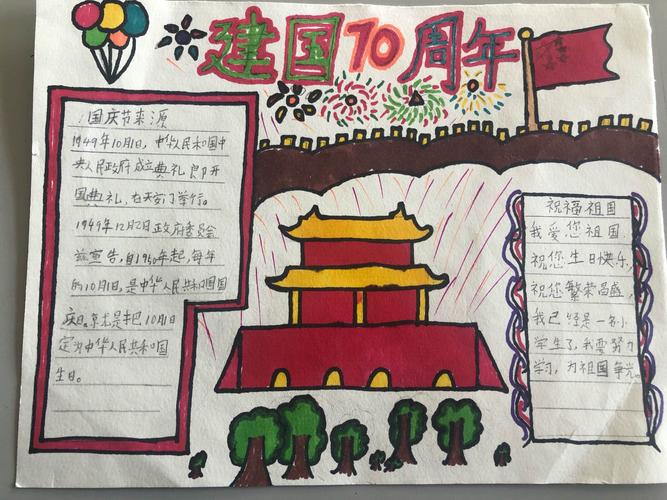 建国70周年
国庆节来源
1949年10月1日，中华人民和国中
央人民政府成立典礼即开
国典礼，在天安门举行。
1949年12月2日政府委员会
宣告，自1950年起，每年
的10月1日，是中华人民共和国国
庆日。就是把10月1日
定为中华人民共和国
生日。
祝福祖国
我爱您祖国，
祝您生日快乐，
祝您繁荣昌盛，
我已经是一名小
学生了，我要努力
学习，为祖国争光。